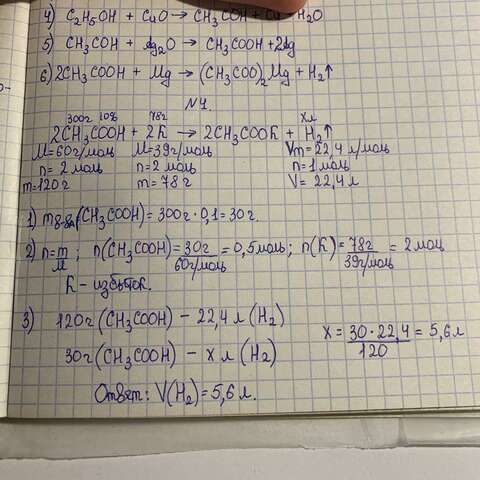 4) C₂H₅OH + CuO → CH₃COH + Cu + H₂O
5) CH₃COH + Ag₂O → CH₃COOH + 2Ag
6) 2CH₃COOH + Mg → (CH₃COO)₂Mg + H₂↑
N1.
300г 10% 78г хл
2CH₃COOH + 2K → 2CH₃COOK + H₂↑
M=60г/моль M=39г/моль Vm=22,4 л/моль
n=2 моль n=2 моль n=1 моль
m=120г m=78г V=22,4л
1) m в-ва (CH₃COOH)=300г·0,1=30г.
2) n=m/M; n(CH₃COOH)=30г/60г/моль=0,5моль; n(K)=78г/39г/моль=2моль
K-избыток.
3) 120г(CH₃COOH) - 22,4 л(H₂)
30г(CH₃COOH) - х л(H₂)
x=30·22,4/120=5,6л
Ответ: V(H₂)=5,6л.